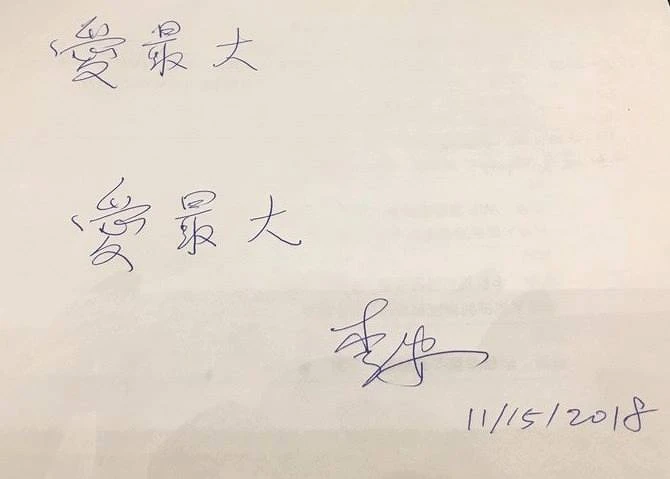 愛最大
愛最大
李安
11/15/2018